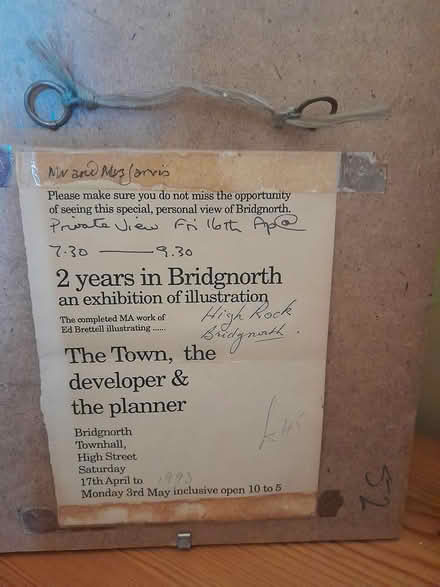 Mr and Mrs Jarvis
Please make sure you do not miss the opportunity
of seeing this special, personal view of Bridgnorth.
Private View Fri 16th
7.30 — 9.30
2 years in Bridgnorth
an exhibition of illustration
The completed MA work of
Ed Brettell illustrating ......
High Rock
Bridgnorth.
The Town, the
developer &
the planner
Bridgnorth
Townhall,
High Street
Saturday
17th April to 1993
Monday 3rd May inclusive open 10 to 5
52